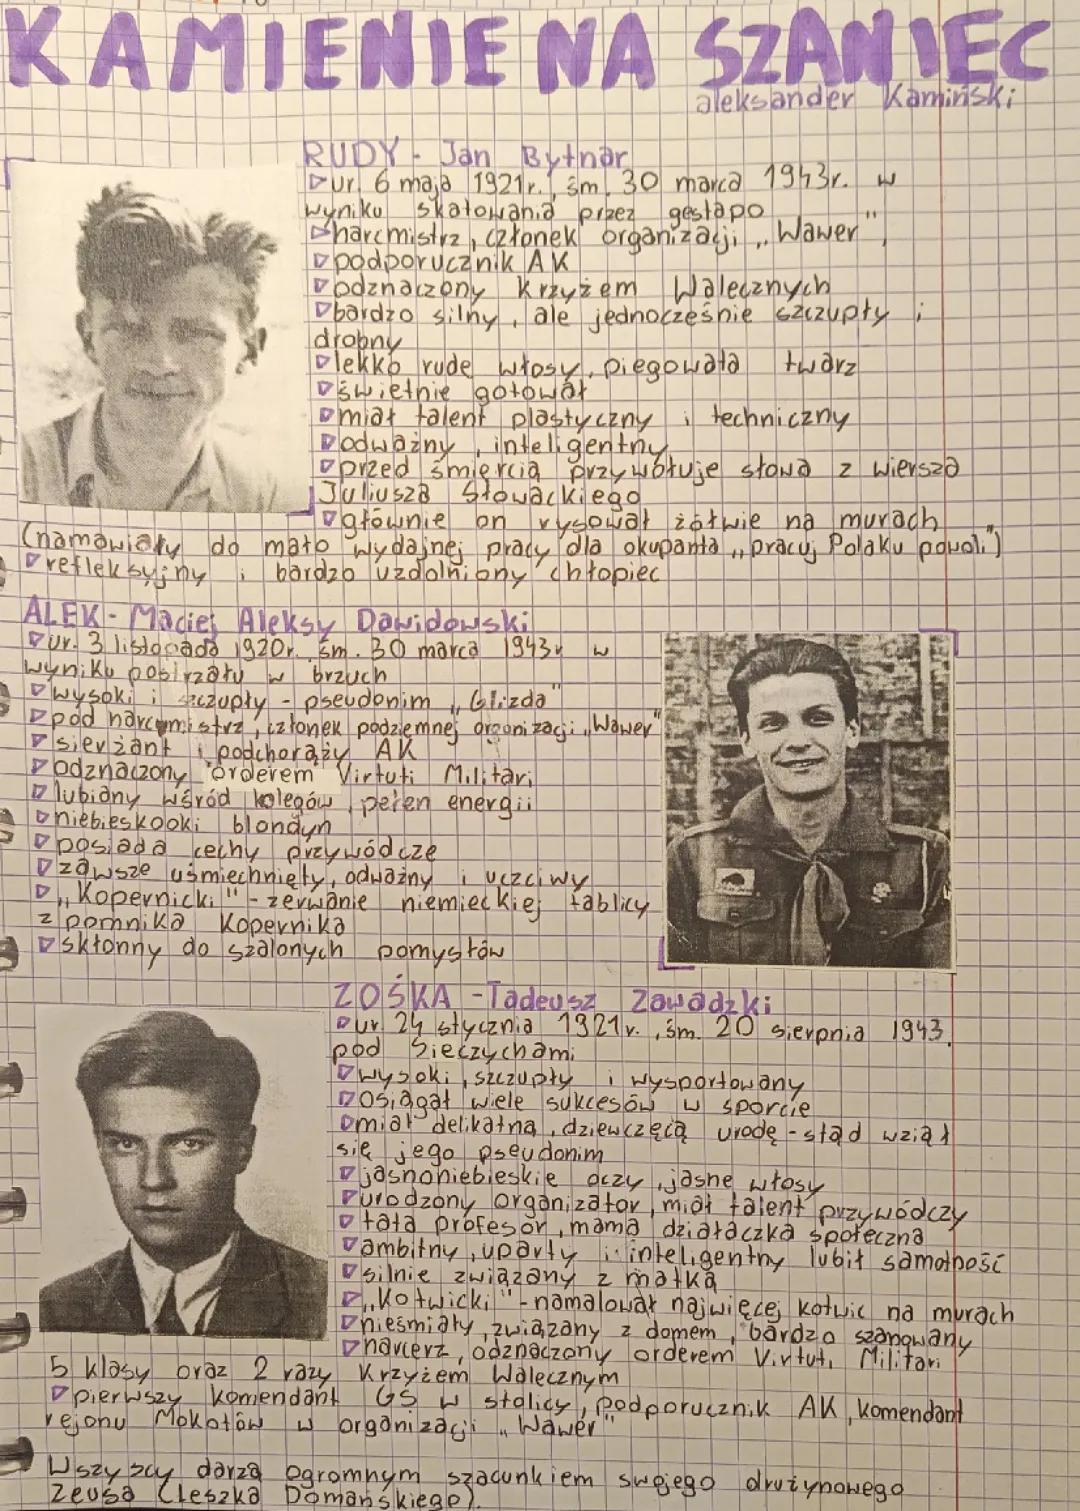 KAMIENIE NA SZANIEC
aleksander Kamiński
RUDY - Jan Bytnar
ur. 6 maja 1921r., śm. 30 marca 1943r. w
wyniku skatowania przez gestapo
harcmistrz, członek organizacji „Wawer",
podporucznik AK
odznaczony Krzyżem Walecznych
bardzo silny, ale jednocześnie szczupły i
drobny
lekko rude włosy, piegowata twarz
świetnie gotował
miał talent plastyczny i techniczny
odważny, inteligentny
przed śmiercią przywołuje słowa z wiersza
Juliusza Słowackiego
głównie on rysował żółwie na murach
(namawiały do mało wydajnej pracy dla okupanta „pracuj Polaku powoli")
refleksyjny i bardzo uzdolniony chłopiec
ALEK - Maciej Aleksy Dawidowski
ur. 3 listopada 1920r. śm. 30 marca 1943r w
wyniku postrzału w brzuch
wysoki i szczupły - pseudonim „Glizda"
pod harcmistrz, członek podziemnej organizacji „Wawer"
sierżant i podchorąży AK
odznaczony orderem Virtuti Militari
lubiany wśród kolegów, pełen energii
niebieskooki blondyn
posiada cechy przywódcze
zawsze uśmiechnięty, odważny i uczciwy
„Kopernicki" - zerwanie niemieckiej tablicy
z pomnika Kopernika
skłonny do szalonych pomysłów
ZOŚKA - Tadeusz Zawadzki
ur 24 stycznia 1921r., śm. 20 sierpnia 1943.
pod Sieczychami
wysoki, szczupły i wysportowany
osiągał wiele sukcesów w sporcie
miał delikatną, dziewczęcą urodę - stąd wziął
się jego pseudonim
jasnoniebieskie oczy, jasne włosy
urodzony organizator, miał talent przywódczy
tata profesor, mama działaczka społeczna
ambitny, uparty i inteligentny lubił samotność
silnie związany z matką
„Kotwicki" - namalował najwięcej kotwic na murach
nieśmiały, związany z domem, bardzo szanowany
harcerz, odznaczony orderem Virtuti Militari
5 klasy oraz 2 razy Krzyżem Walecznym
pierwszy komendant GS w stolicy, podporucznik AK, komendant
rejonu Mokotów w organizacji „Wawer"
Wszyscy darzą ogromnym szacunkiem swojego drużynowego
Zeusa (Leszka Domańskiego).